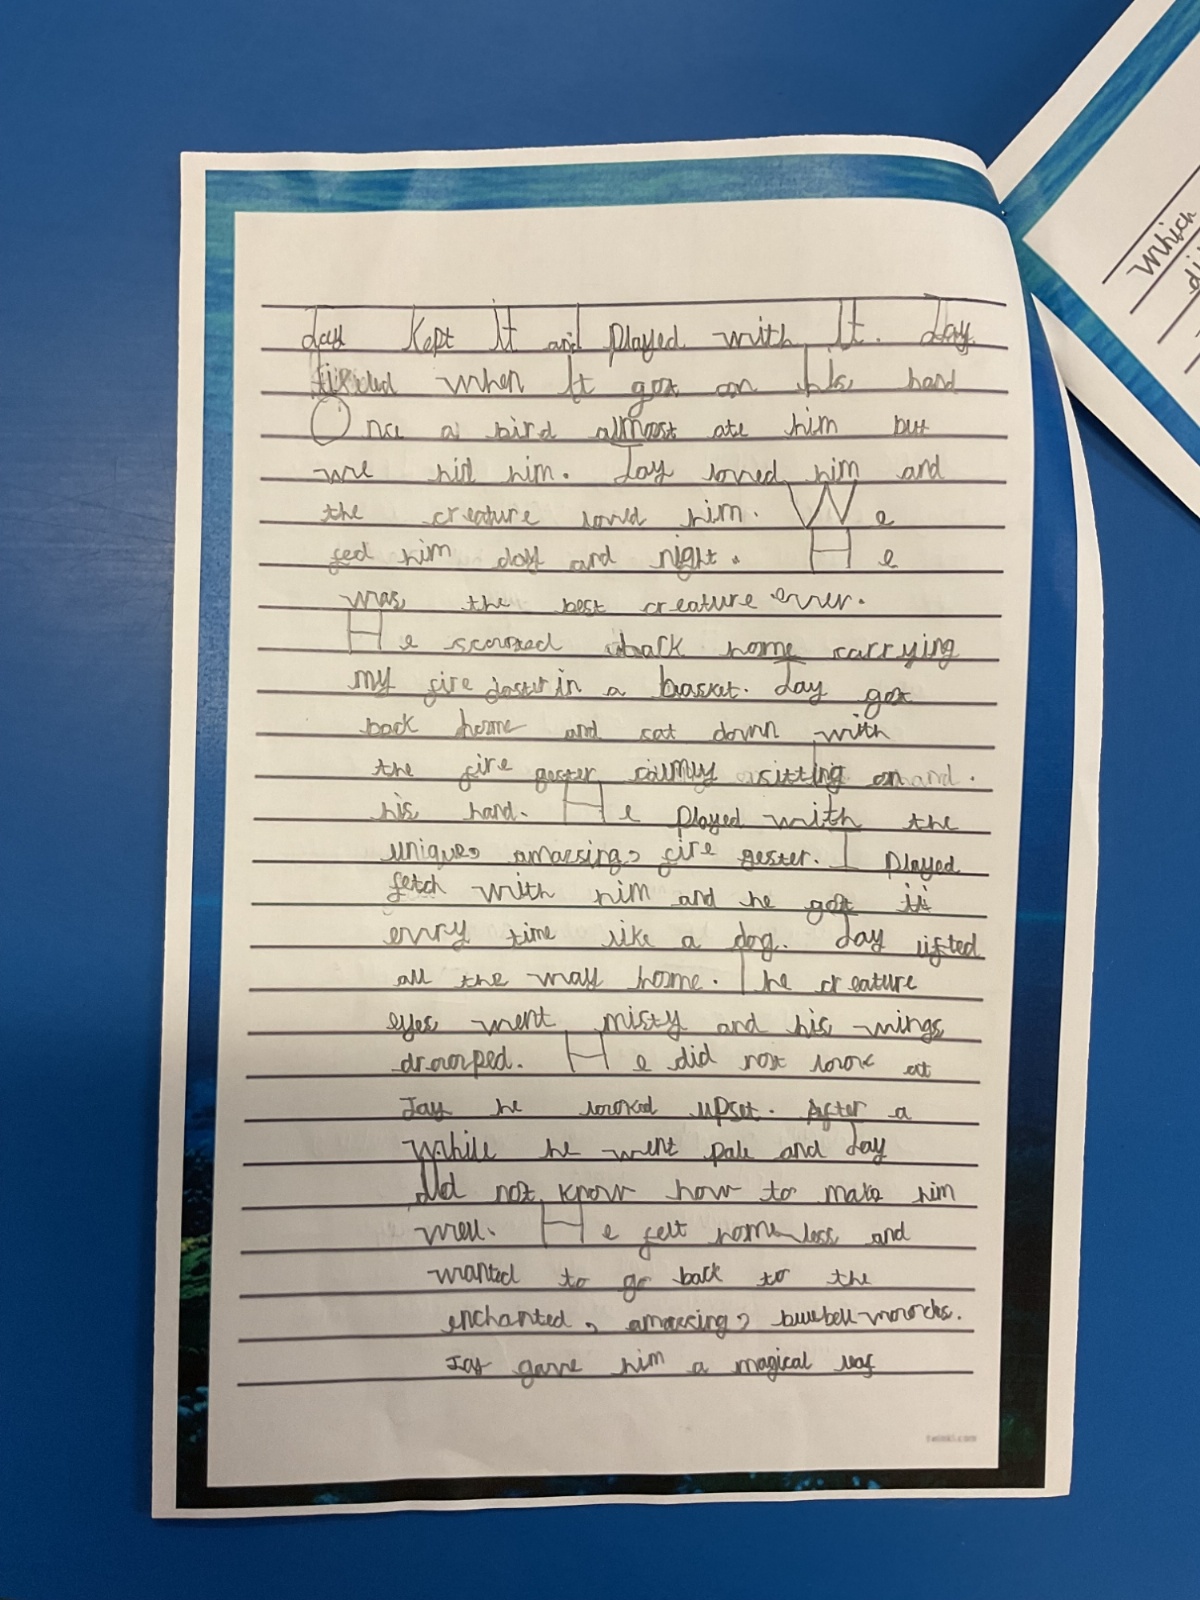 Jay kept It and played with It. Jay
when It got on his hand
Once a bird almost ate him but
we hid him. Jay loved him and
the creature loved him. We
fed him day and night. He
was the best creature ever.
He scooted back home carrying
my fire in a basket. Jay got
back home and sat down with
the fire gester sitting on
his hand. He played with the
unique, amaesing, fire gester. I played
fetch with him and he got it
evry time like a dog. Jay lifted
all the way home. The creature
eyes went misty and his wings
drooped. He did not look at
Jay he looked upset. After a
while he went pale and Jay
did not know how to make him
well. He felt home less and
wanted to go back to the
enchanted, amaesing, bluebell woods.
Jay gave him a magical leaf
twinkl.com
which